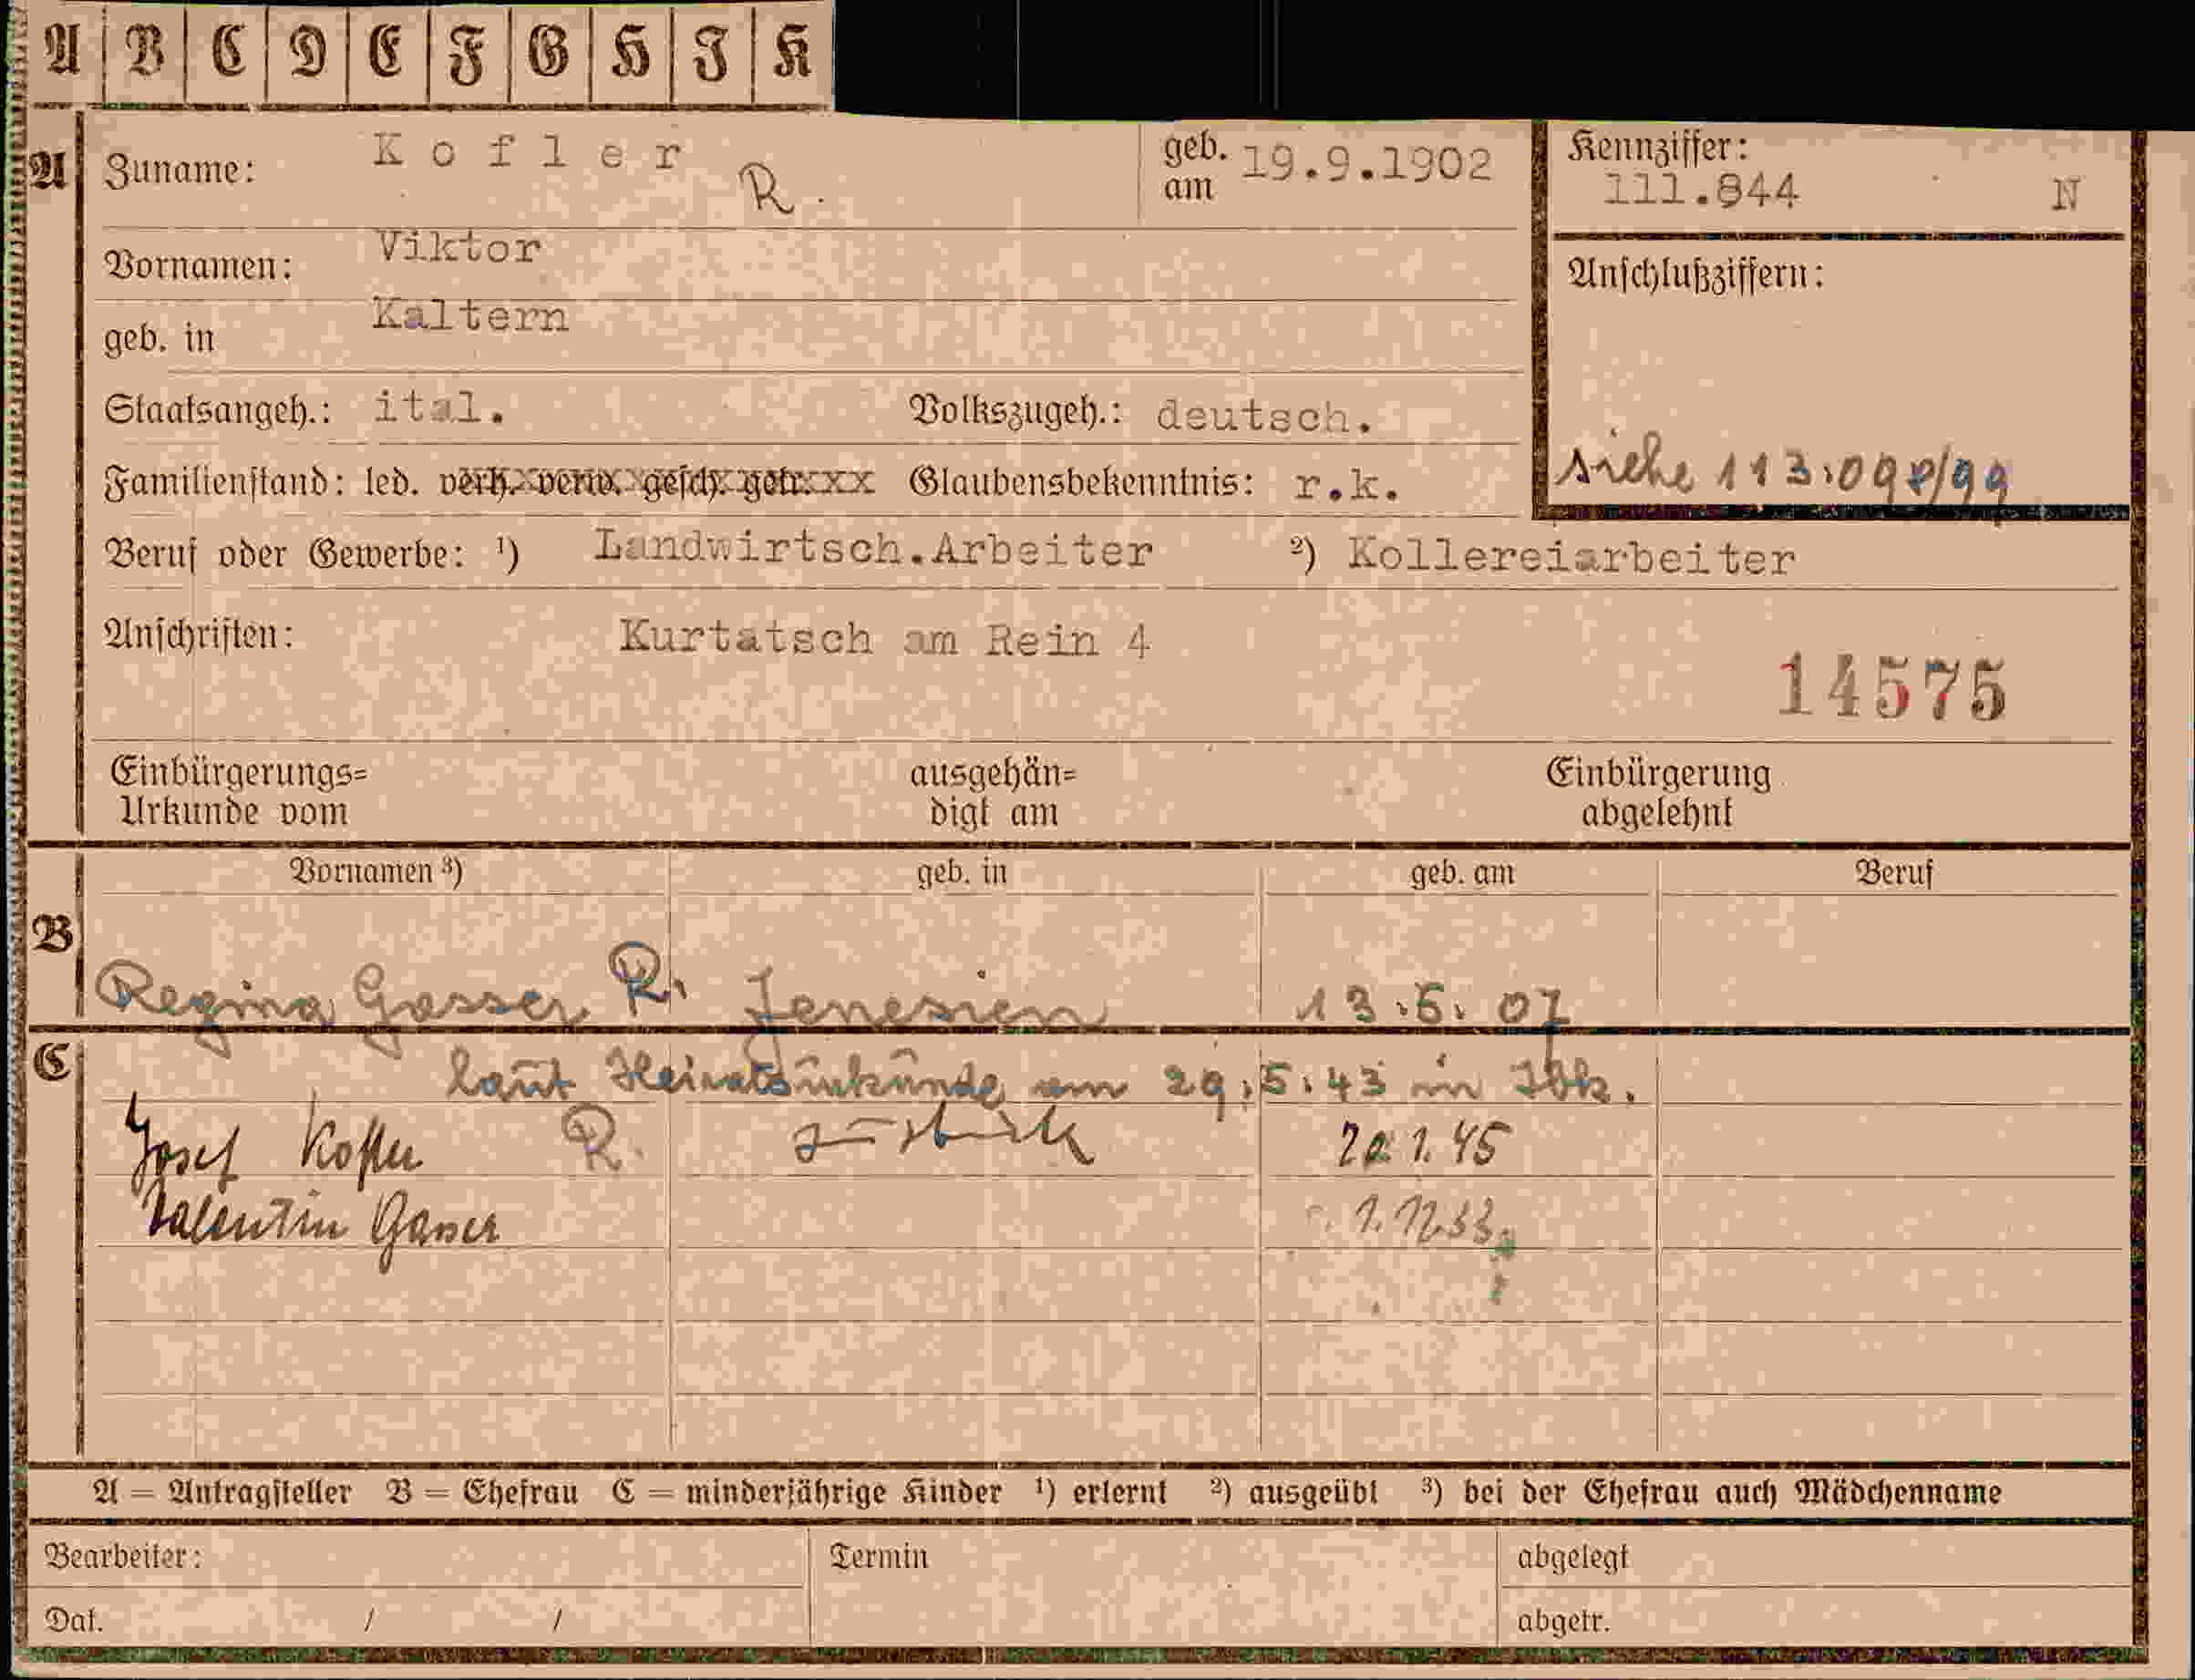 A B C D E F G H I K
A Zuname: Kofler R. geb. am 19.9.1902 Kennziffer: 111.844 N
Vornamen: Viktor Anschlußziffern:
geb. in Kaltern
Staatsangeh.: ital. Volkszugeh.: deutsch.
Familienstand: led. verh. verw. gesch. getr. Glaubensbekenntnis: r.k. siehe 113.098/99
Beruf oder Gewerbe: ¹) Landwirtsch.Arbeiter ²) Kollereiarbeiter
Anschriften: Kurtatsch am Rein 4
14575
Einbürgerungs= ausgehän= Einbürgerung
Urkunde vom digt am abgelehnt
Vornamen ³) geb. in geb. am Beruf
B
Regina Gasser R. Jenesien 13.5.07
C
laut Heiratsurkunde am 29.5.43 in Ibk.
Josef Kofler R. 1.45
Valentin Gasser
A = Antragsteller B = Ehefrau C = minderjährige Kinder ¹) erlernt ²) ausgeübt ³) bei der Ehefrau auch Mädchenname
Bearbeiter: Termin abgelegt
Dat. / / abgetr.